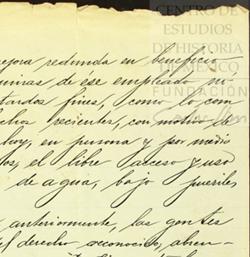 CENTRO DE
ESTUDIOS
DE HISTORIA
DE MÉXICO
FUNDACIÓN
ejora redunda en beneficio
miras de ése empleado, no
tardos fines, como lo com
chos recientes, con motivo de
hoy, en persona y por medio
os, el libre acceso y uso
de agua, bajo pueriles
anteriormente, las gentes
el derecho reconocido, abren-